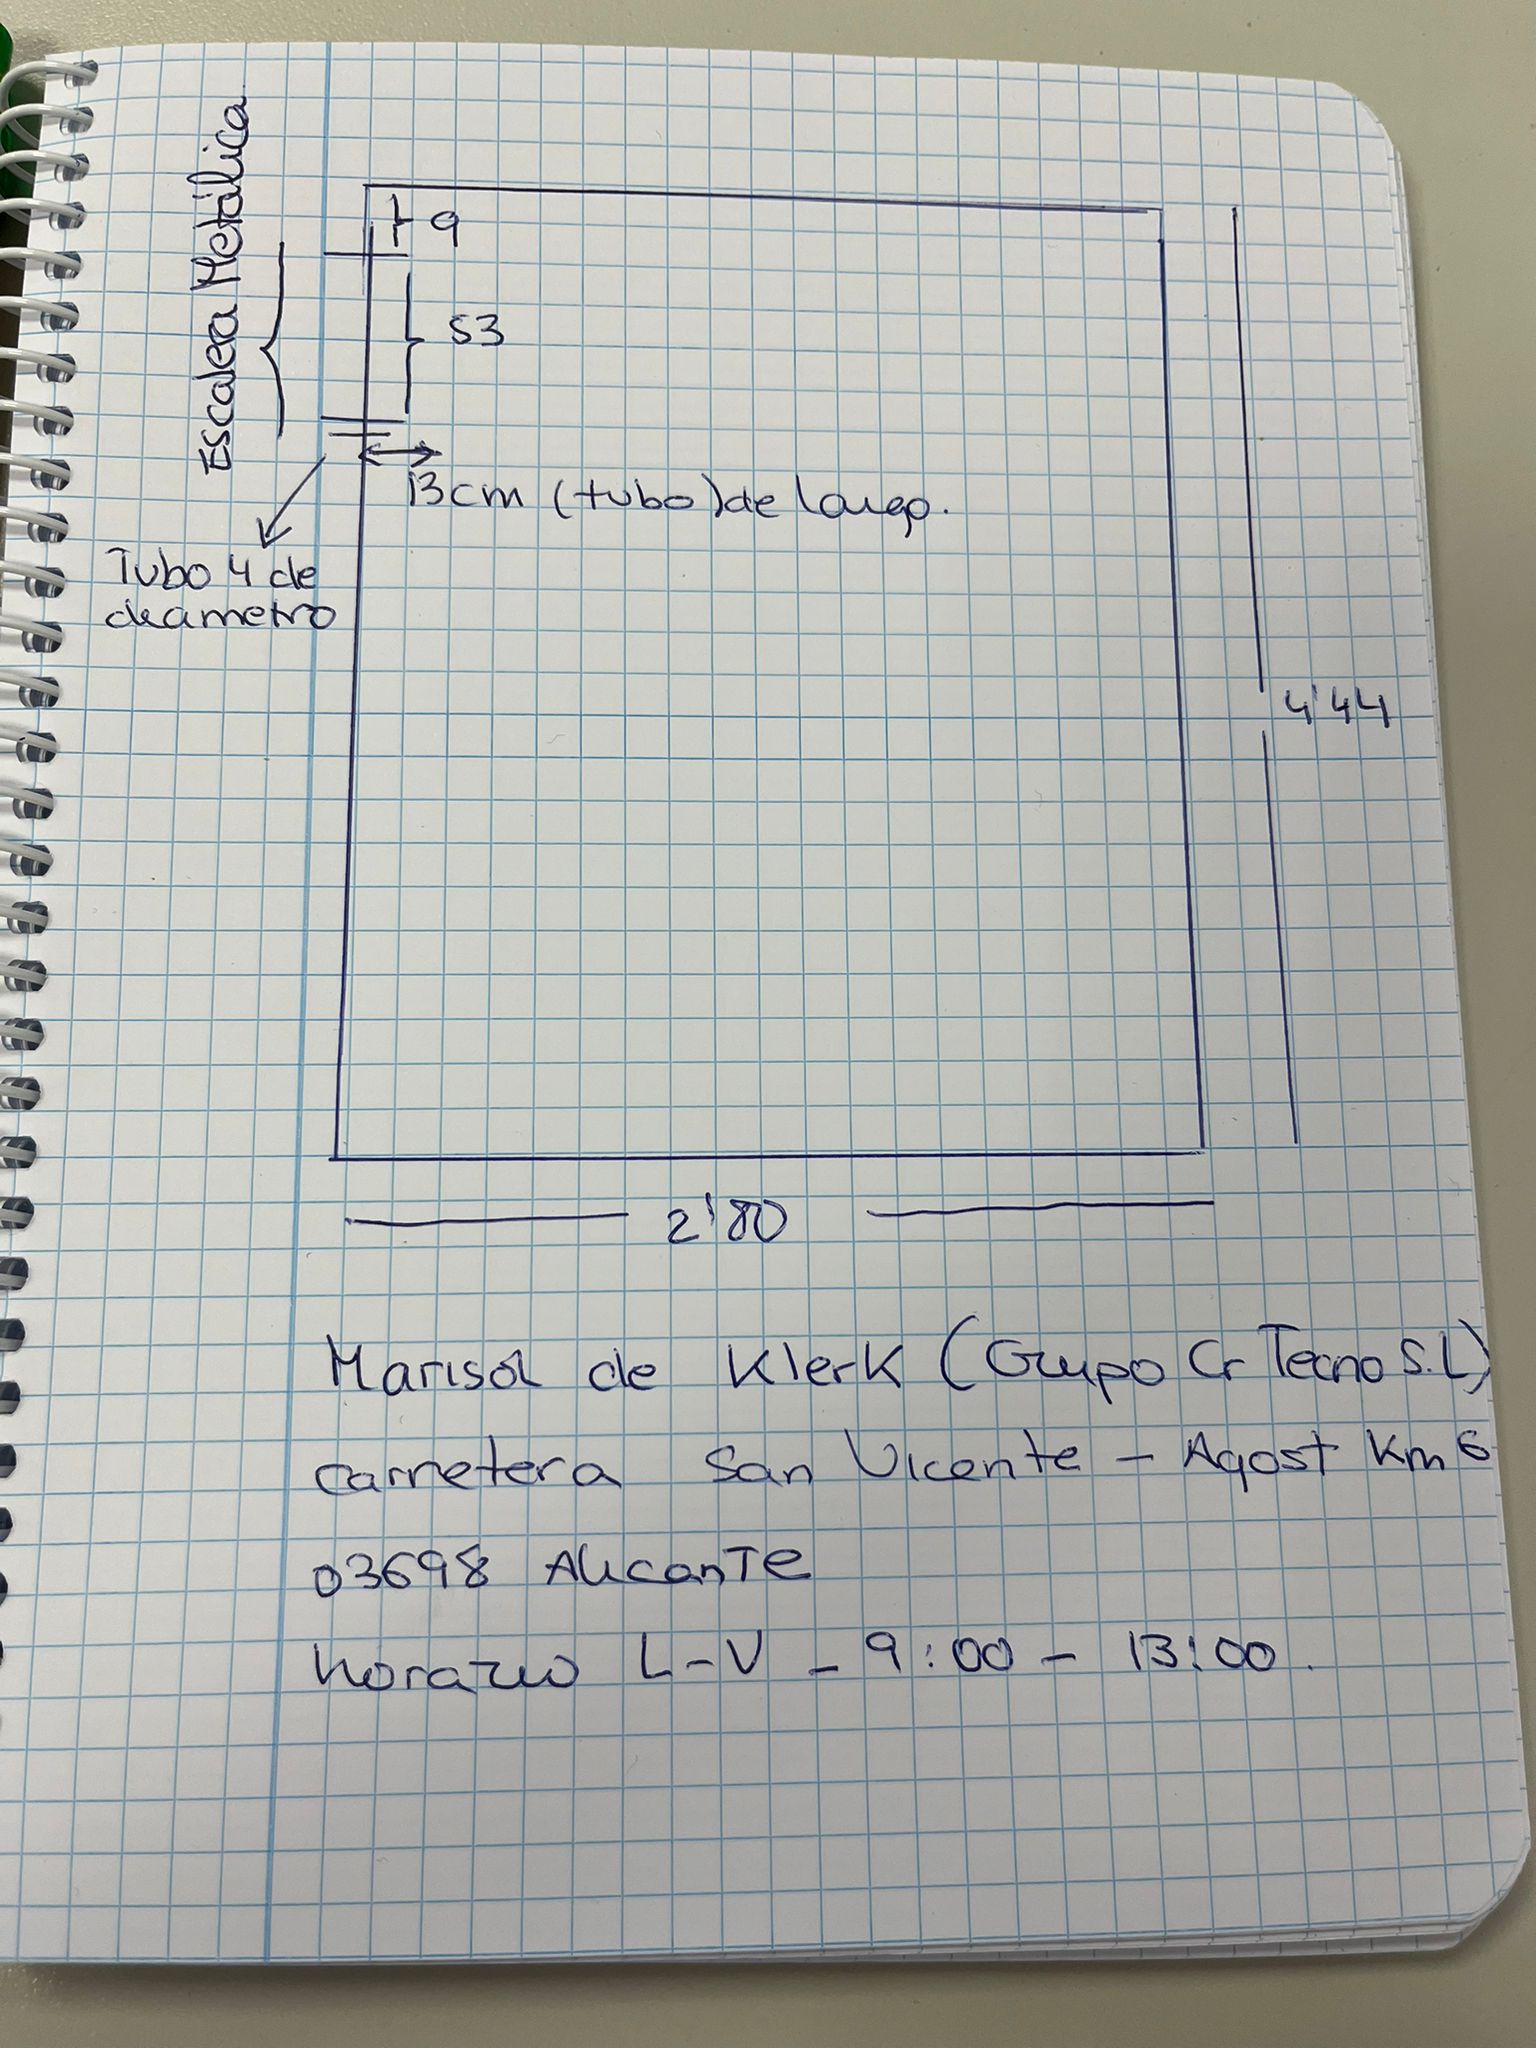 Escalera Metálica
9
53
13cm (tubo) de largo.
Tubo 4 de
diametro
4'44
2'80
Marisol de Klerk (Grupo Cr Tecno S.L)
carretera San Vicente - Agost Km 6
03698 Alicante
horario L-V - 9:00 - 13:00.